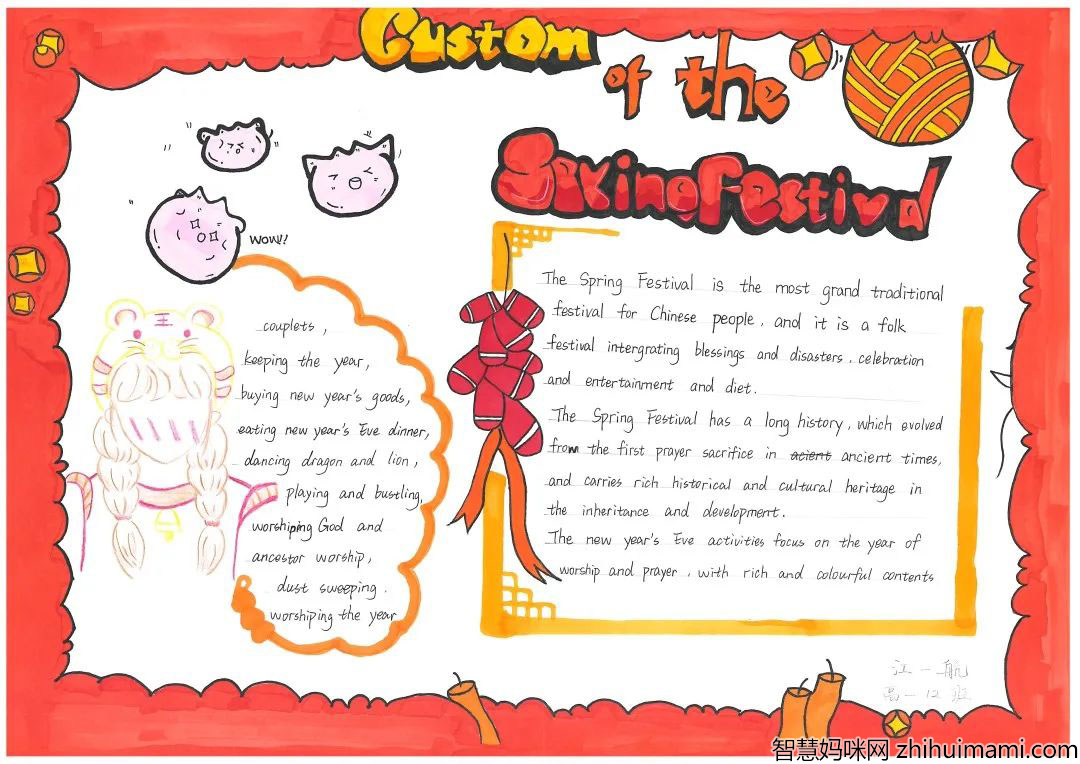 Custom
of the
Spring Festival
WOW!!
couplets,
keeping the year,
buying new year's goods,
eating new year's Eve dinner,
dancing dragon and lion,
playing and bustling,
worshiping God and
ancestor worship,
dust sweeping.
worshiping the year
The Spring Festival is the most grand traditional
festival for Chinese people, and it is a folk
festival intergrating blessings and disasters, celebration
and entertainment and diet.
The Spring Festival has a long history, which evolved
from the first prayer sacrifice in acient ancient times,
and carries rich historical and cultural heritage in
the inheritance and development.
The new year's Eve activities focus on the year of
worship and prayer, with rich and colourful contents
江一航
高一12班
智慧妈咪网 zhihuimami.com